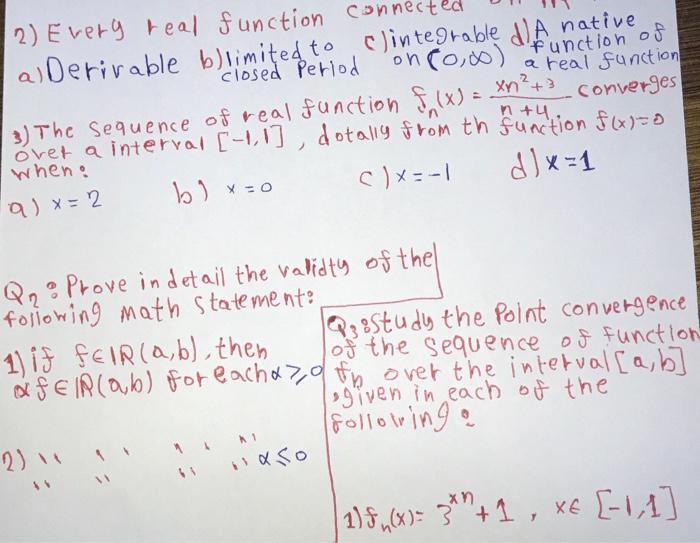 2) Every real function connected
a) Derivable b) limited to closed Period c) integrable on (0,∞) d) A native function of a real function
3) The sequence of real function fn(x) = xn²+3 / n+4 converges
over a interval [-1,1], dotally from th function f(x)=0
when:
a) x=2 b) x=0 c) x=-1 d) x=1
Q2: Prove in detail the validty of the
following math statement:
1) if f∈IR(a,b), then
αf∈IR(a,b) for each α≥0
2) " " " " "
" " " " α≤0
Q3: Study the Point convergence
of the sequence of function
fn over the interval [a,b]
, given in each of the
following:
1) fn(x) = 3^xn + 1 , x∈ [-1,1]